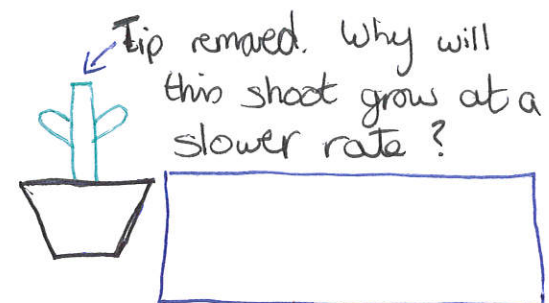 Tip removed. Why will
this shoot grow at a
slower rate?